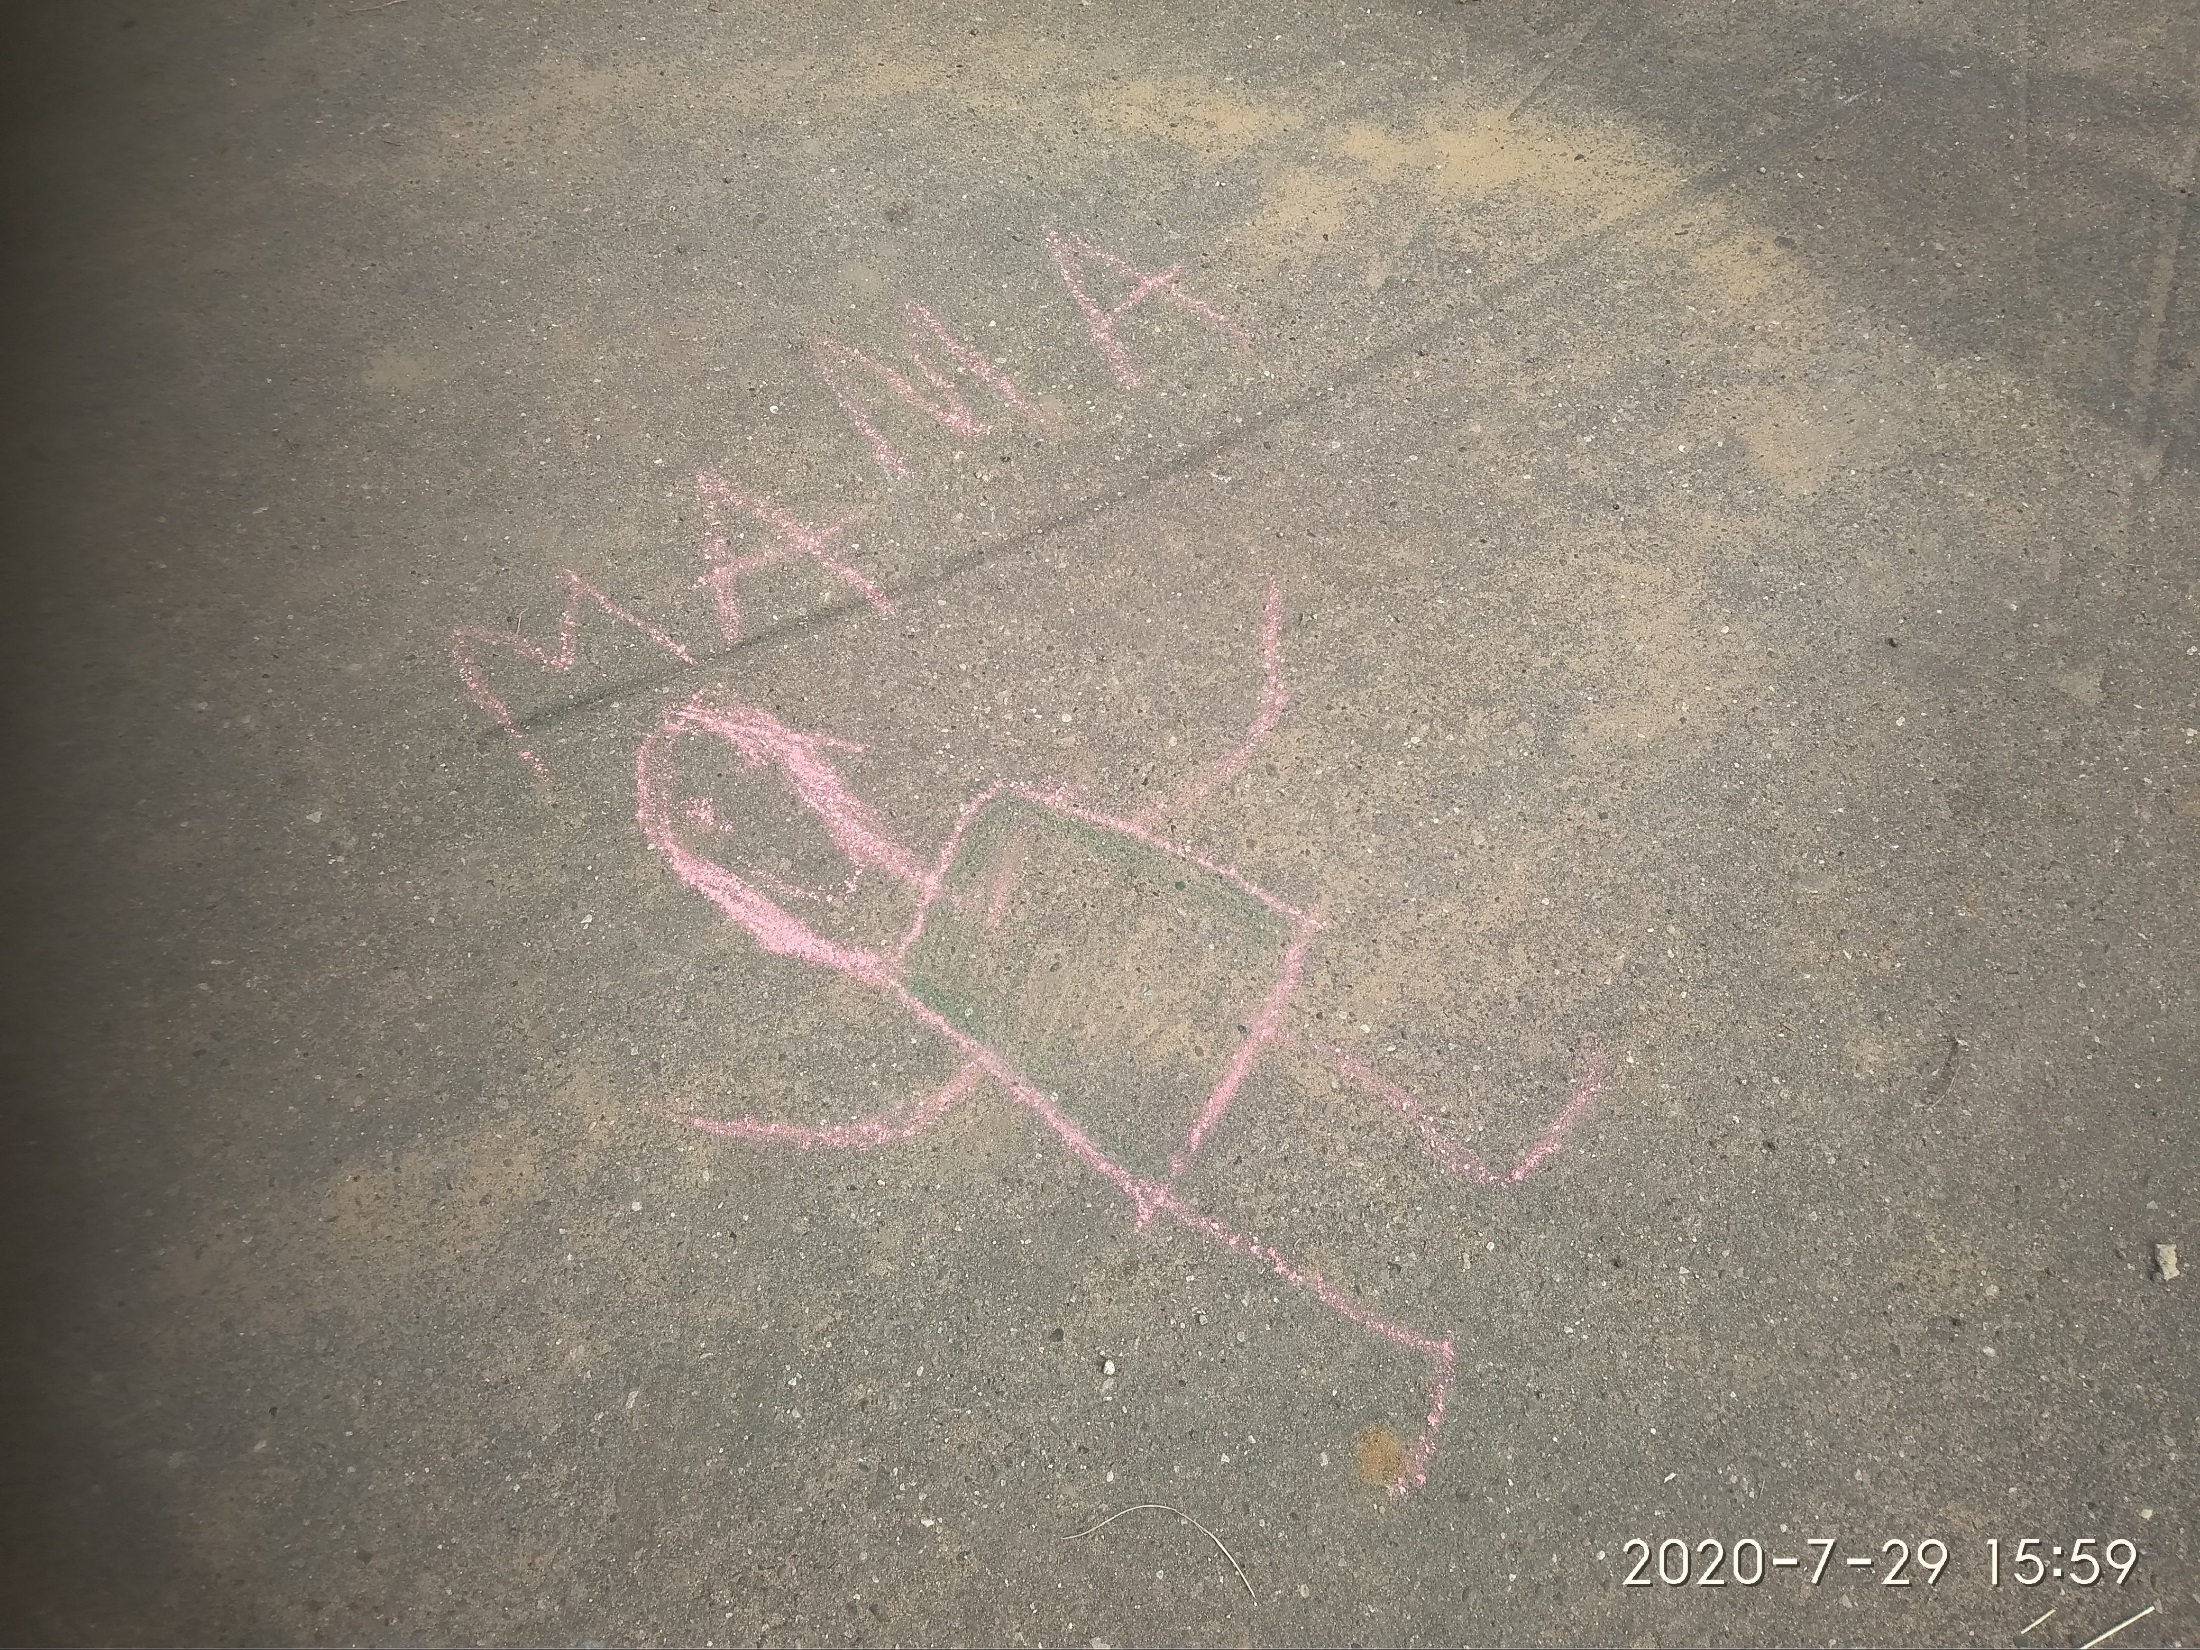 МАМА
2020-7-29 15:59